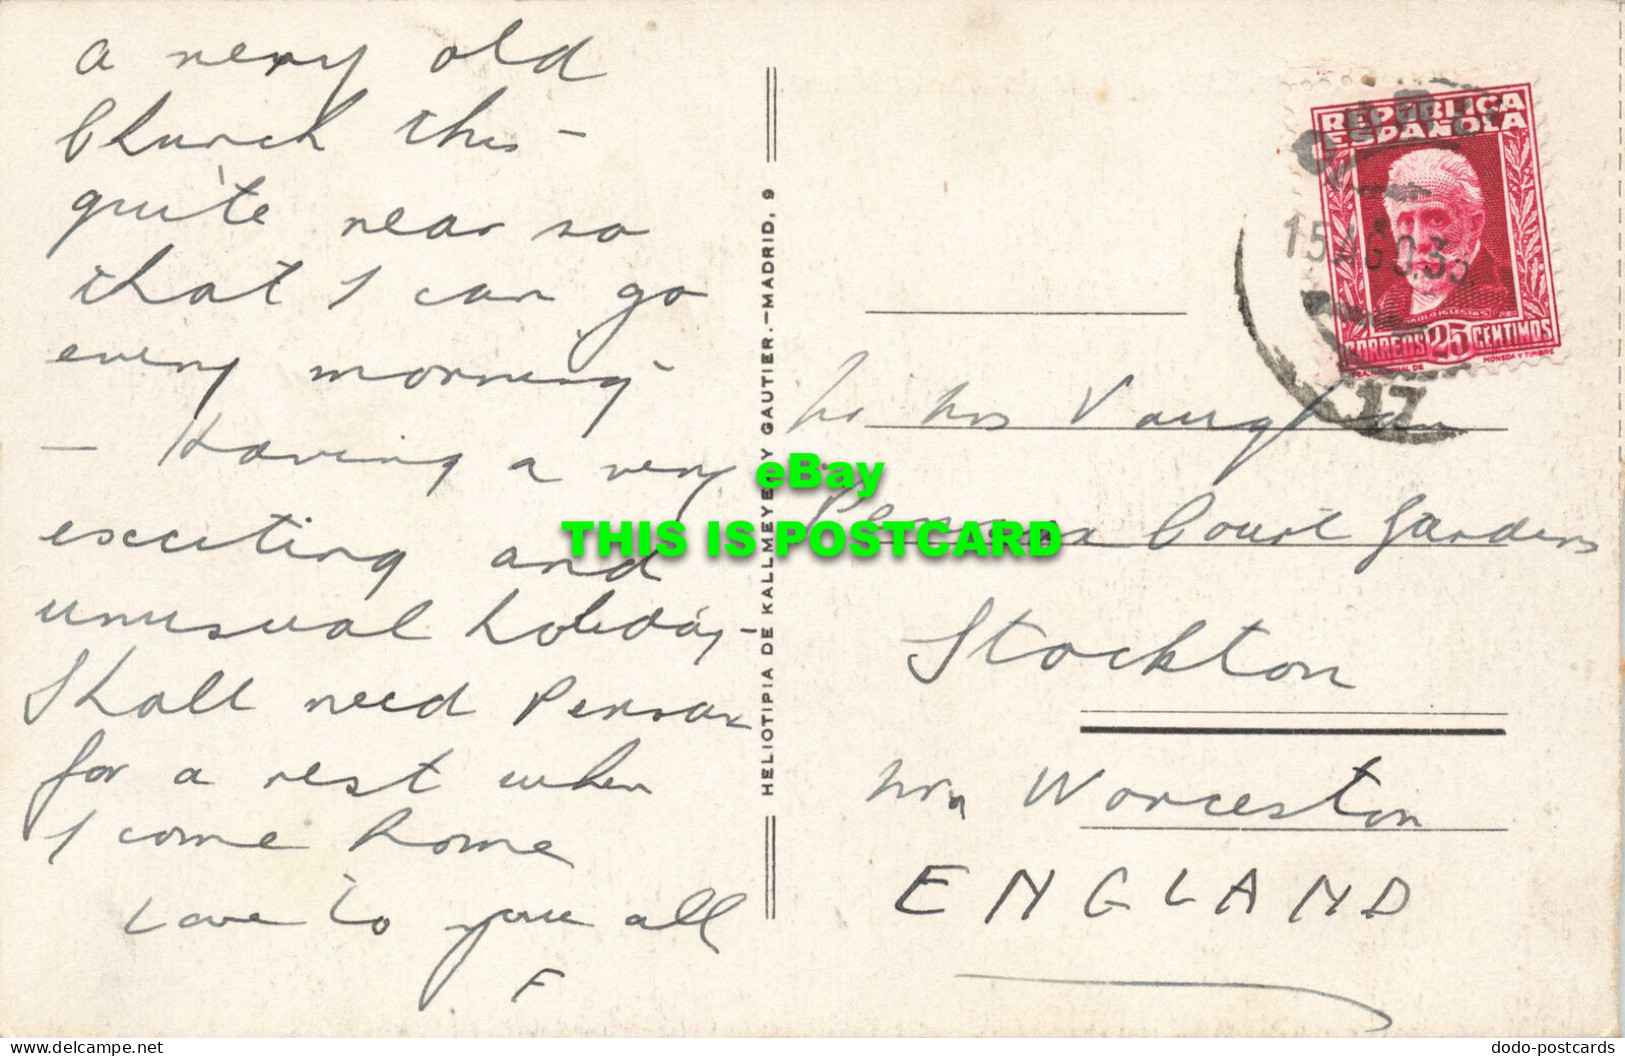 a very old
Church this -
quite near so
that I can go
every morning -
- Having a very
exciting and
unusual holiday -
Shall need Pensax
for a rest when
I come home
Love to you all
F
HELIOTIPIA DE KALLMEYER Y GAUTIER.-MADRID, 9
REPUBLICA
ESPAÑOLA
PABLO IGLESIAS
CORREOS 25 CENTIMOS
MONEDA Y TIMBRE
15 AGO.3
17
Mr Mrs Vaughan
Pensax Court Gardens
Stockton
Worceston
ENGLAND
eBay
THIS IS POSTCARD
dodo-postcards